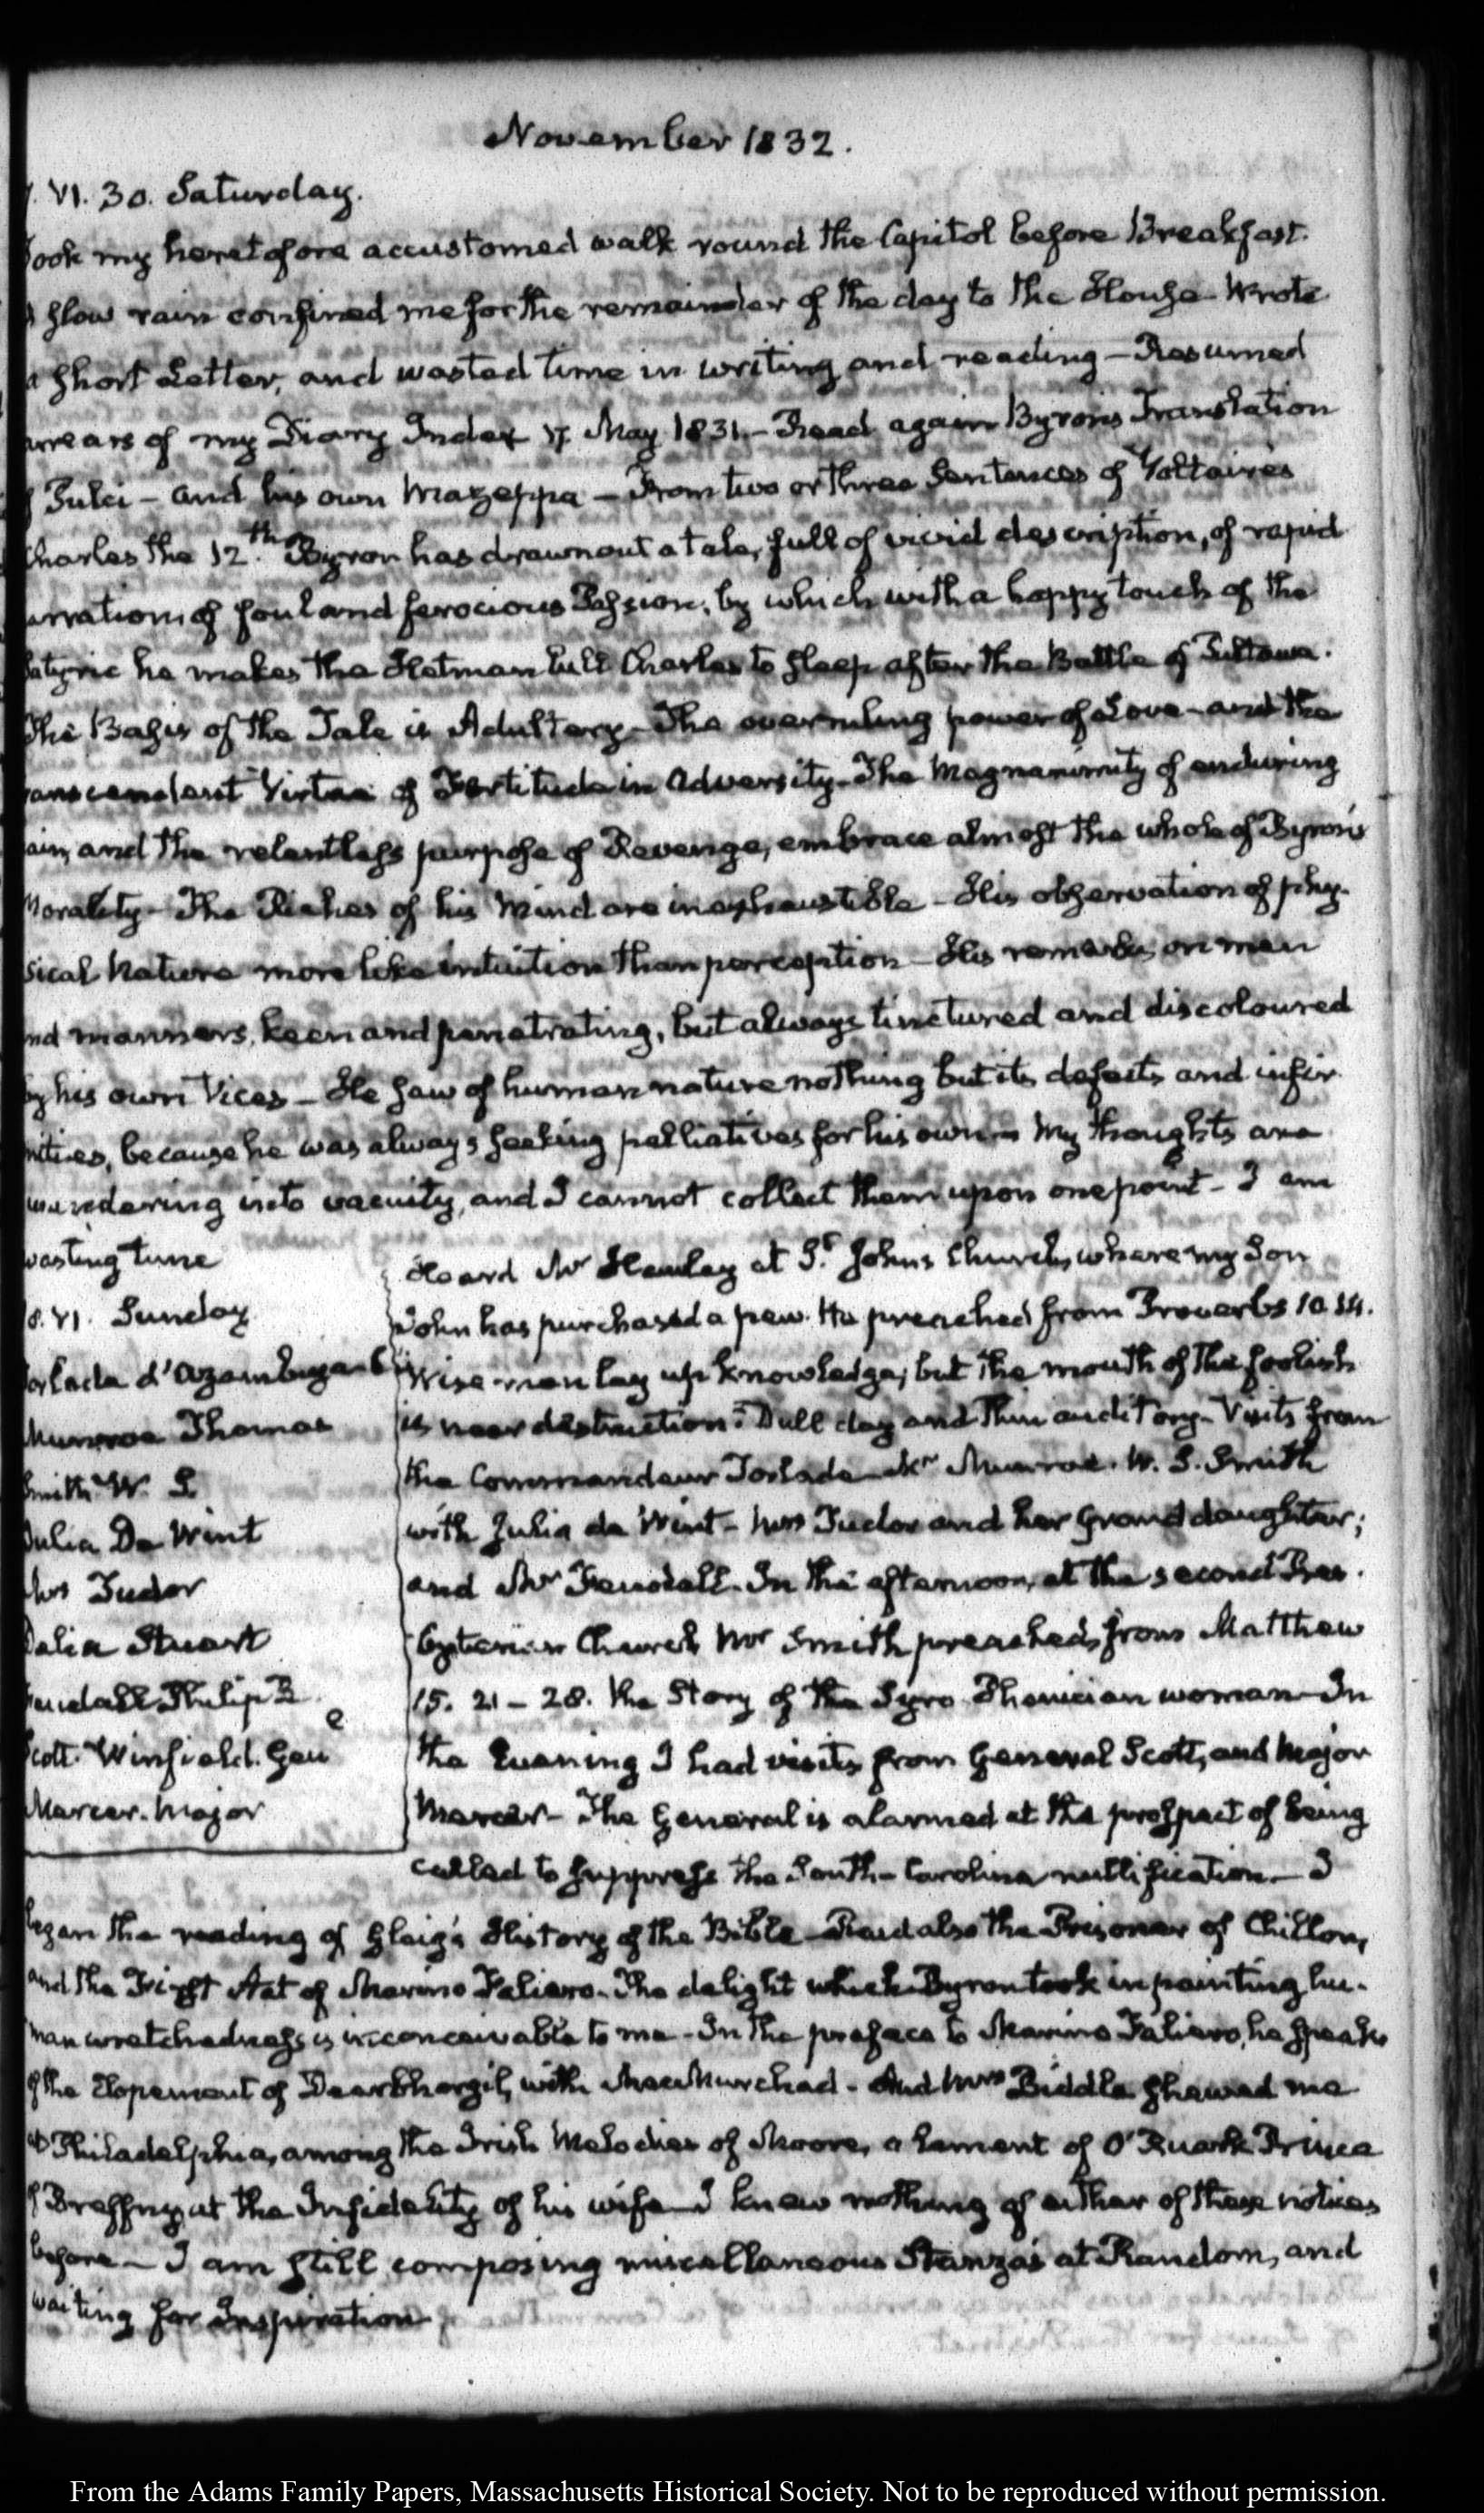 November 1832.
VI. 30. Saturday.
ook my heretofore accustomed walk round the Capitol before Breakfast.
slow rain confined me for the remainder of the day to the House. Wrote
a short Letter, and wasted time in writing and reading — Resumed
arrears of my Diary Index 17. May 1831. — Read again Byron's Translation
of Pulci — and his own Mazeppa — From two or three Sentences of Voltaire's
Charles the 12.th Byron has drawn out a tale, full of vivid description, of rapid
arration, of foul and ferocious Passion; by which with a happy touch of the
Satyric he makes the Hetman lull Charles to sleep after the Battle of Pultawa.
The Basis of the Tale is Adultery — The overruling power of Love — and the
anscendant Virtue of Fortitude in adversity — The Magnanimity of enduring
ain, and the relentless purpose of Revenge, embrace almost the whole of Byron's
Morality — The Riches of his Mind are inexhaustible — His observation of phy-
sical Nature more like intuition than perception — His remarks on men
nd manners, keen and penetrating, but always tinctured and discoloured
by his own Vices — He saw of human nature nothing but its defects and infir-
mities, because he was always seeking palliatives for his own — My thoughts are
wandering into vacuity, and I cannot collect them upon one point — I am
wasting time
18. VI. Sunday
orlade d'Azambuja
Munroe Thomas
Smith W. S.
Julia De Wint
Mrs Tudor
Delia Stuart
Fendall Philip R
Scott. Winfield. Gen
e
Mercer. Major
Heard Mr Hawley at St. John's Church, where my Son
John has purchased a pew. He preached from Proverbs 10. 14.
"Wise men lay up knowledge; but the mouth of the foolish
is near destruction." Dull day and thin auditory — Visits from
the Commandeur Torlade — Mr Munroe. W. S. Smith
with Julia de Wint — Mrs Tudor and her Grand daughter;
and Mr Fendall. In the afternoon, at the second Pres-
byterian Church Mr Smith preached, from Matthew
15. 21 – 28. the Story of the Syro Phenician woman — In
the Evening I had visits from General Scott, and Major
Mercer — The General is alarmed at the prospect of being
called to suppress the South-Carolina nullification — I
began the reading of Gleig's History of the Bible — Read also the Prisoner of Chillon,
and the First Act of Marino Faliero. The delight which Byron took in painting hu-
man wretchedness is inconceivable to me — In the preface to Marino Faliero, he speaks
of the Elopement of Dearbhorgil, with MacMurchad — And Mrs Biddle shewed me
at Philadelphia, among the Irish Melodies of Moore, a lament of O'Ruark Prince
of Breffny, at the Infidelity of his wife — I knew nothing of either of these notices
before — I am still composing miscellaneous Stanzas at Random, and
waiting for Inspiration
From the Adams Family Papers, Massachusetts Historical Society. Not to be reproduced without permission.